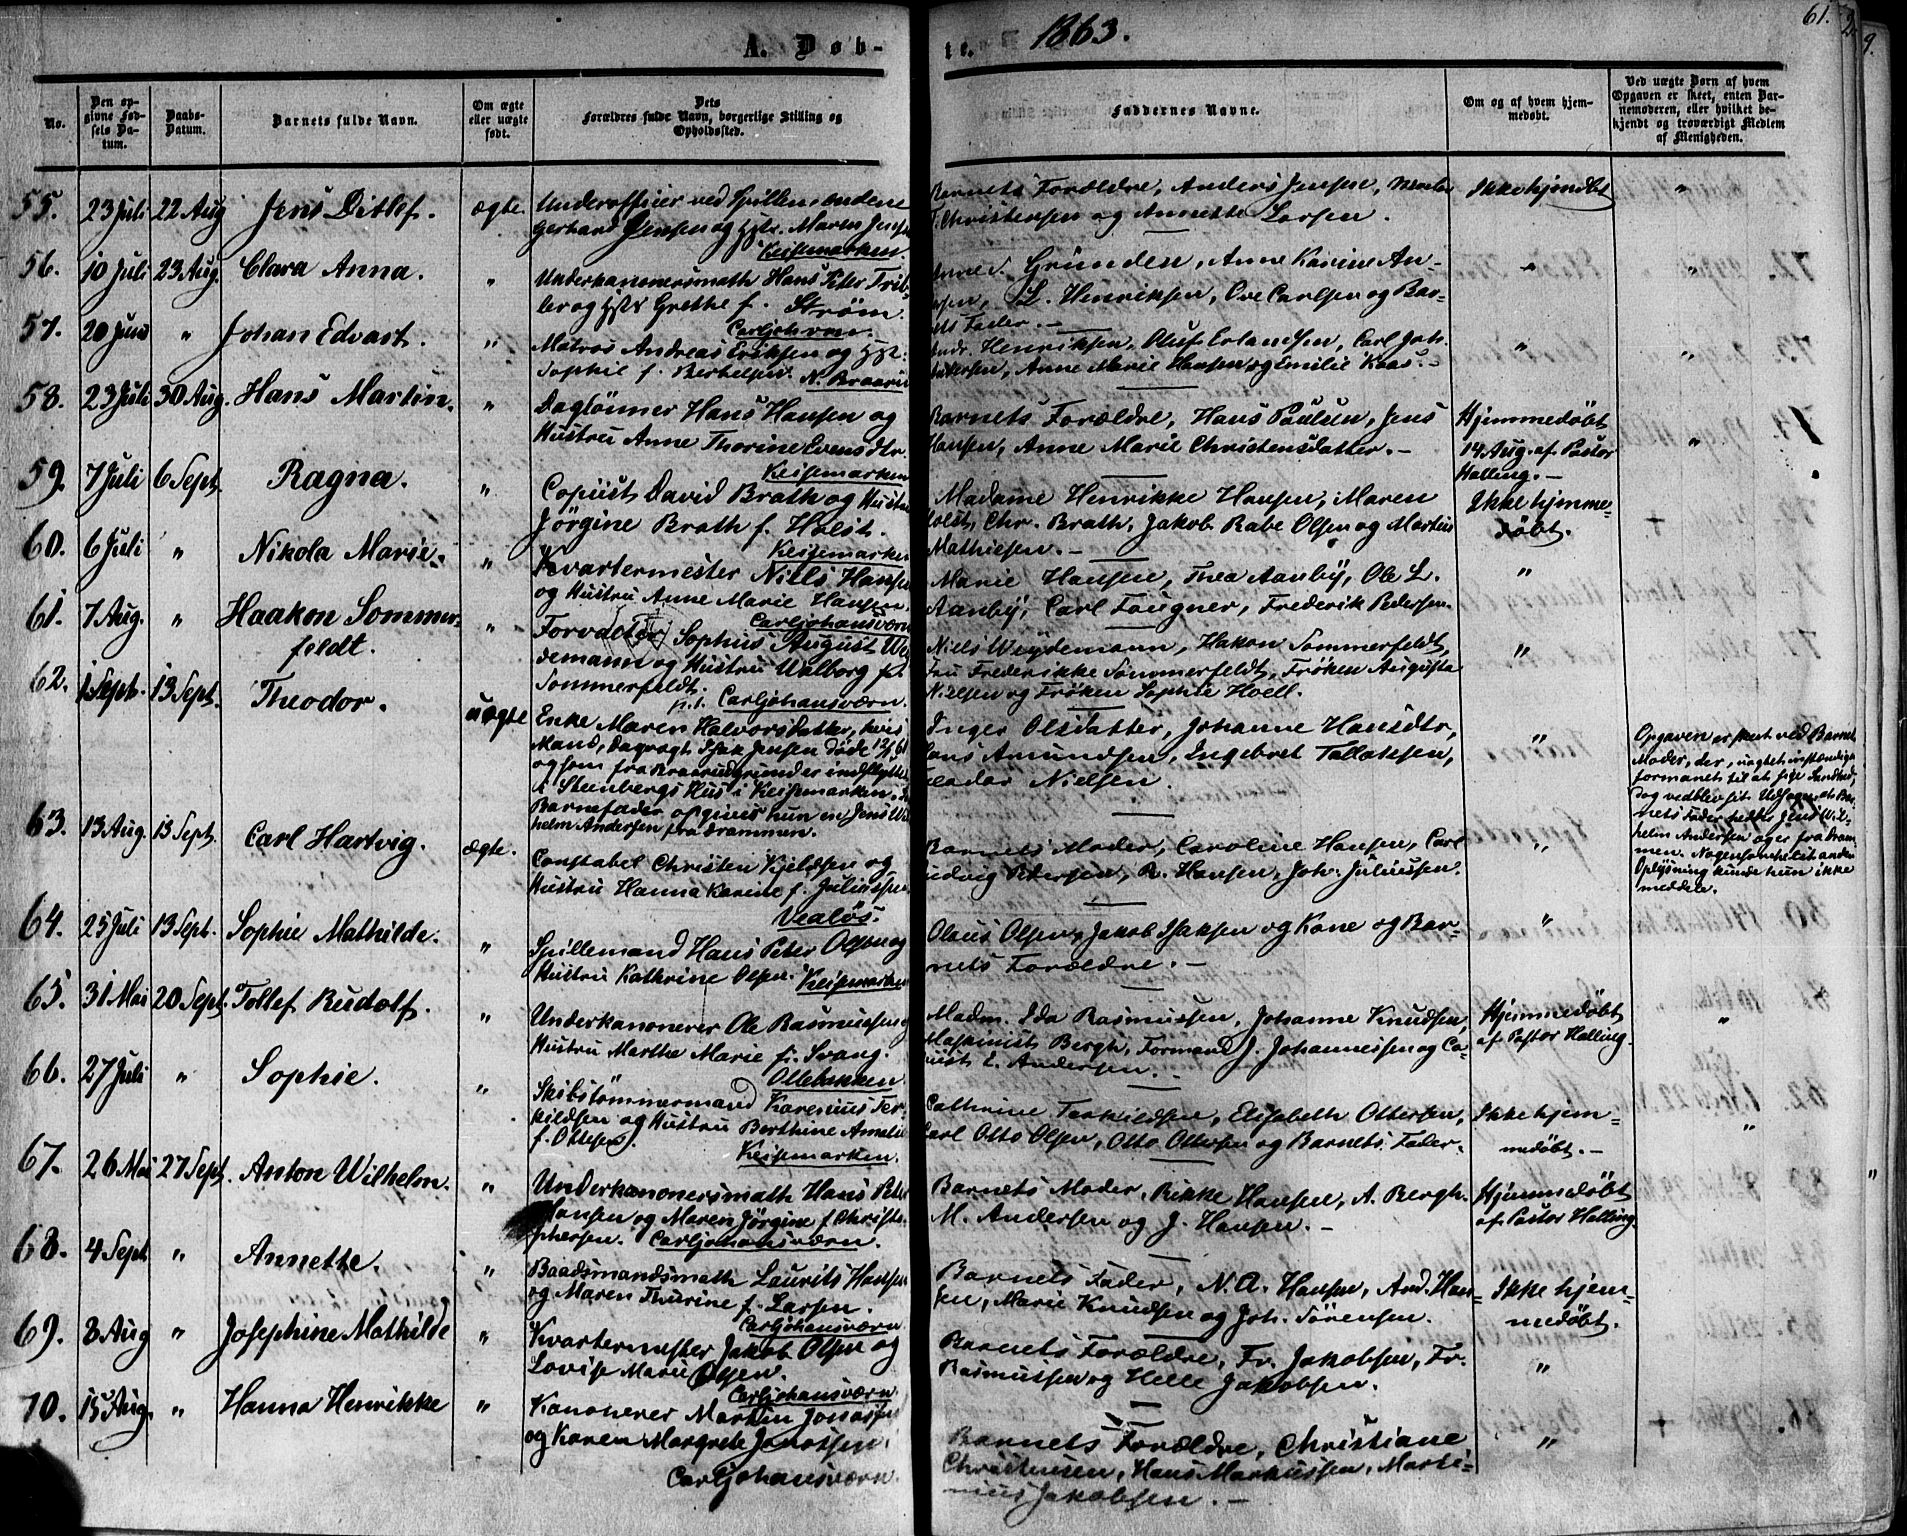 A. Døb-
te. 1863.
61.
No.
Den op-
givne Fød-
sels Da-
tum.
Daabs-
Datum.
Barnets fulde Navn.
Om ægte
eller uægte
født.
Dets
Forældres fulde Navn, borgerlige Stilling og
Opholdssted.
Faddernes Navne.
Om og af hvem hjem-
medøbt.
Ved uægte Børn af hvem
Opgaven er skeet, enten Bar-
nemoderen, eller hvilket be-
kjendt og troværdigt Medlem
af Menigheden.
55. 23 Juli 22 Aug Jens Ditlef. ægte.
Underofficier ved Spillemændene
Gerhard Jensen og Hstr. Maren Jensen
Keisemarken.
Barnets Forældre, Anders Jensen,
Christensen og Annette Larsen.
Ikke hjemdøbt "
56. 10 Juli 23 Aug. Clara Anna. "
Underkanonersmath Hans Peter
og Hstr Grethe f. Strøm.
Carljohvrn.
Gründen, Anne Karine An-
L. Henriksen, Ove Carlsen og Bar-
nets Fader.
" "
57. 20 Juni " Johan Edvart. "
Matros Andreas Eriksen og Hst:
Sophie f. Berthelsen. N. Braarud
Andr. Henriksen, Oluf Erlandsen, Carl Joh.
Andersen, Anne Marie Hansen og Emilie Kaas.
" "
58. 23 Juli 30 Aug. Hans Martin. "
Daglønner Hans Hansen og
Hustru Anne Thorine Evensdtr.
Keisemarken
Barnets Forældre, Hans Paulsen, Jens
Hansen, Anne Marie Christensdatter.
Hjemmedøbt
14 Aug. af Pastor
Halling. "
59. 7 Juli 6 Sept. Ragna. "
Copiist David Brath og Hustru
Jørgine Brath f. Holst.
Keisemarken
Madame Henrikke Hansen, Maren
Holst, Chr. Brath, Jakob Rabe Olsen og Martin
Mathiesen.
Ikke hjemme-
døbt.
60. 6 Juli " Nikola Marie. "
Kvartermester Niels Hansen
og Hustru Anne Marie Hansen.
Carljohansværn
Marie Hansen, Thea Aanby, Ole L.
Aanby, Carl Fougner, Frederik Pedersen.
"
61. 7 Aug. " Haakon Sommer-
feldt. "
Forvalter Sophus August Wey-
demann og Hustru Walborg f.
Sommerfeldt.
p.t. Carljohansværn.
Niels Weydemann, Hakon Sommerfeldt,
Fru Frederikke Sommerfeldt, Frøken Augusta
Nielsen og Frøken Sophie Hoell.
"
62. 1 Sept. 13 Sept. Theodor. uægte
Enke Maren Halvorsdatter, hvis
Mand, Dagvagt Isak Jensen døde 12/5 61
og som fra Braarudgrunden er indflyttet
i Steenbergs Hus i Keisemarken. Til
Barnefader opgives hun en Jens Wil-
helm Andersen fra Drammen.
Inger Olsdatter, Johanne Hansdtr,
Hans Amundsen, Engebret Tallaksen,
Nielsen
"
Opgaven er skeet ved Barnets
Moder, der, uagtet indstændig
formanet til at sige Sandhed,
dog vedblev sit Udsagn, at Bar-
nets Fader hedder Jens Wil-
helm Andersen og er fra Dram-
men. Nogensomhelst anden
Oplysning kunde hun ikke
meddele.
63. 13 Aug. 13 Sept. Carl Hartvig. ægte.
Constabel Christen Kjeldsen og
Hustru Hanna Karine f. Juliussen
Vealøs.
Barnets Moder, Caroline Hansen, Carl
Ludvig Petersen, R. Hansen, Joh. Juliussen.
"
64. 25 Juli 13 Sept. Sophie Mathilde. "
Spillemand Hans Peter Olsen og
Hustru Kathrine Olsen. Keisemarken
Olaus Olsen, Jakob Isaksen og Kone og Bar-
nets Forældre.
"
65. 31 Mai 20 Sept. Tollef Rudolf. "
Underkanonerer Ole Rasmussen og
Hustru Marthe Marie f. Svang.
Ollebakken
Madm. Ida Rasmussen, Johanne Knudsen,
Maskinist Bergh, Formand J. Johannessen og Co-
piist E. Andersen.
Hjemmedøbt
af Pastor Halling. "
66. 27 Juli " Sophie. "
Skibstømmermand Karenius Ter-
kildsen og Hustru Berthine Amalie
f. Ottesen.
Keisemarken.
Cathrine Terkildsen, Elisabeth Ottersen,
Carl Otto Olsen, Otto Ottersen og Barnets Fader.
Ikke hjem-
medøbt. "
67. 26 Mai 27 Sept. Anton Wilhelm. "
Underkanonersmath Hans Peter
Hansen og Maren Jørgine f. Christo-
phersen. Carljohansværn.
Barnets Moder, Rikke Hansen, A. Bergh.
M. Andersen og J. Hansen.
Hjemmedøbt
af Pastor Halling.
68. 4 Sept. " Annette. "
Baadsmandsmath Laurits Hansen
og Maren Thurine f. Larsen.
Carljohansværn
Barnets Fader, N. A. Hansen, And. Han-
sen, Marie Knudsen og Joh. Sørensen.
Ikke hjem-
medøbt.
69. 8 Aug " Josephine Mathilde "
Kvartermester Jakob Olsen og
Lovise Marie Olsen.
Carljohansværn
Barnets Forældre, Fr. Jakobsen, Fr.
Rasmussen og Helle Jakobsen.
"
70. 15 Aug. " Hanna Henrikke "
Kanonerer Martin Jonassen
og Karen Margrete Jonassen.
Carljohansværn.
Barnets Forældre, Christiane
Christensen, Hans Markussen, Marti-
nius Jakobsen.
"